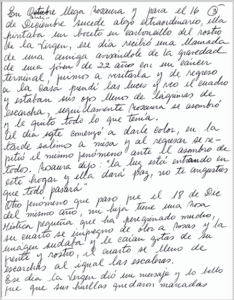 En Octubre llega Roxana y para el 16 3
de Diciembre sucede algo extraordinario, ella
pintaba un boceto en carboncillo del rostro
de la Virgen, ese día recibió una llamada
de una amiga avisandole de la gravedad
de una joven de 22 años en un cáncer
terminal, fuimos a visitarla y de regreso
a la casa prendí las luces y veo el cuadro
y estaban sus ojos llenos de lágrimas de
escarcha, seguidamente Roxana se asombró
y le quitó todo lo que tenía.
El día siguiente comenzó a darle color, en la
tarde salimo a misa y al regreso se re-
pitió el mismo fenómeno ante el asombro de
todos, Roxana dijo: "la luz está entrando en
este hogar y ella dará paz, no te angusties
que todo pasará"
Otro fenómeno que paso fue el 19 de Dic
del mismo año, mi hija tiene una Rosa
Mística pequeña que dió peregrinado mucho,
su cuarto se impregno de olor a rosas y la
imagen sudaba y le caían gotas de su
frente y rostro, el cuarto se lleno de
escarchas al igual las escaleras.
Ese día la Virgen dió un mensaje y lo bello
fue que sus huellas quedaron marcadas